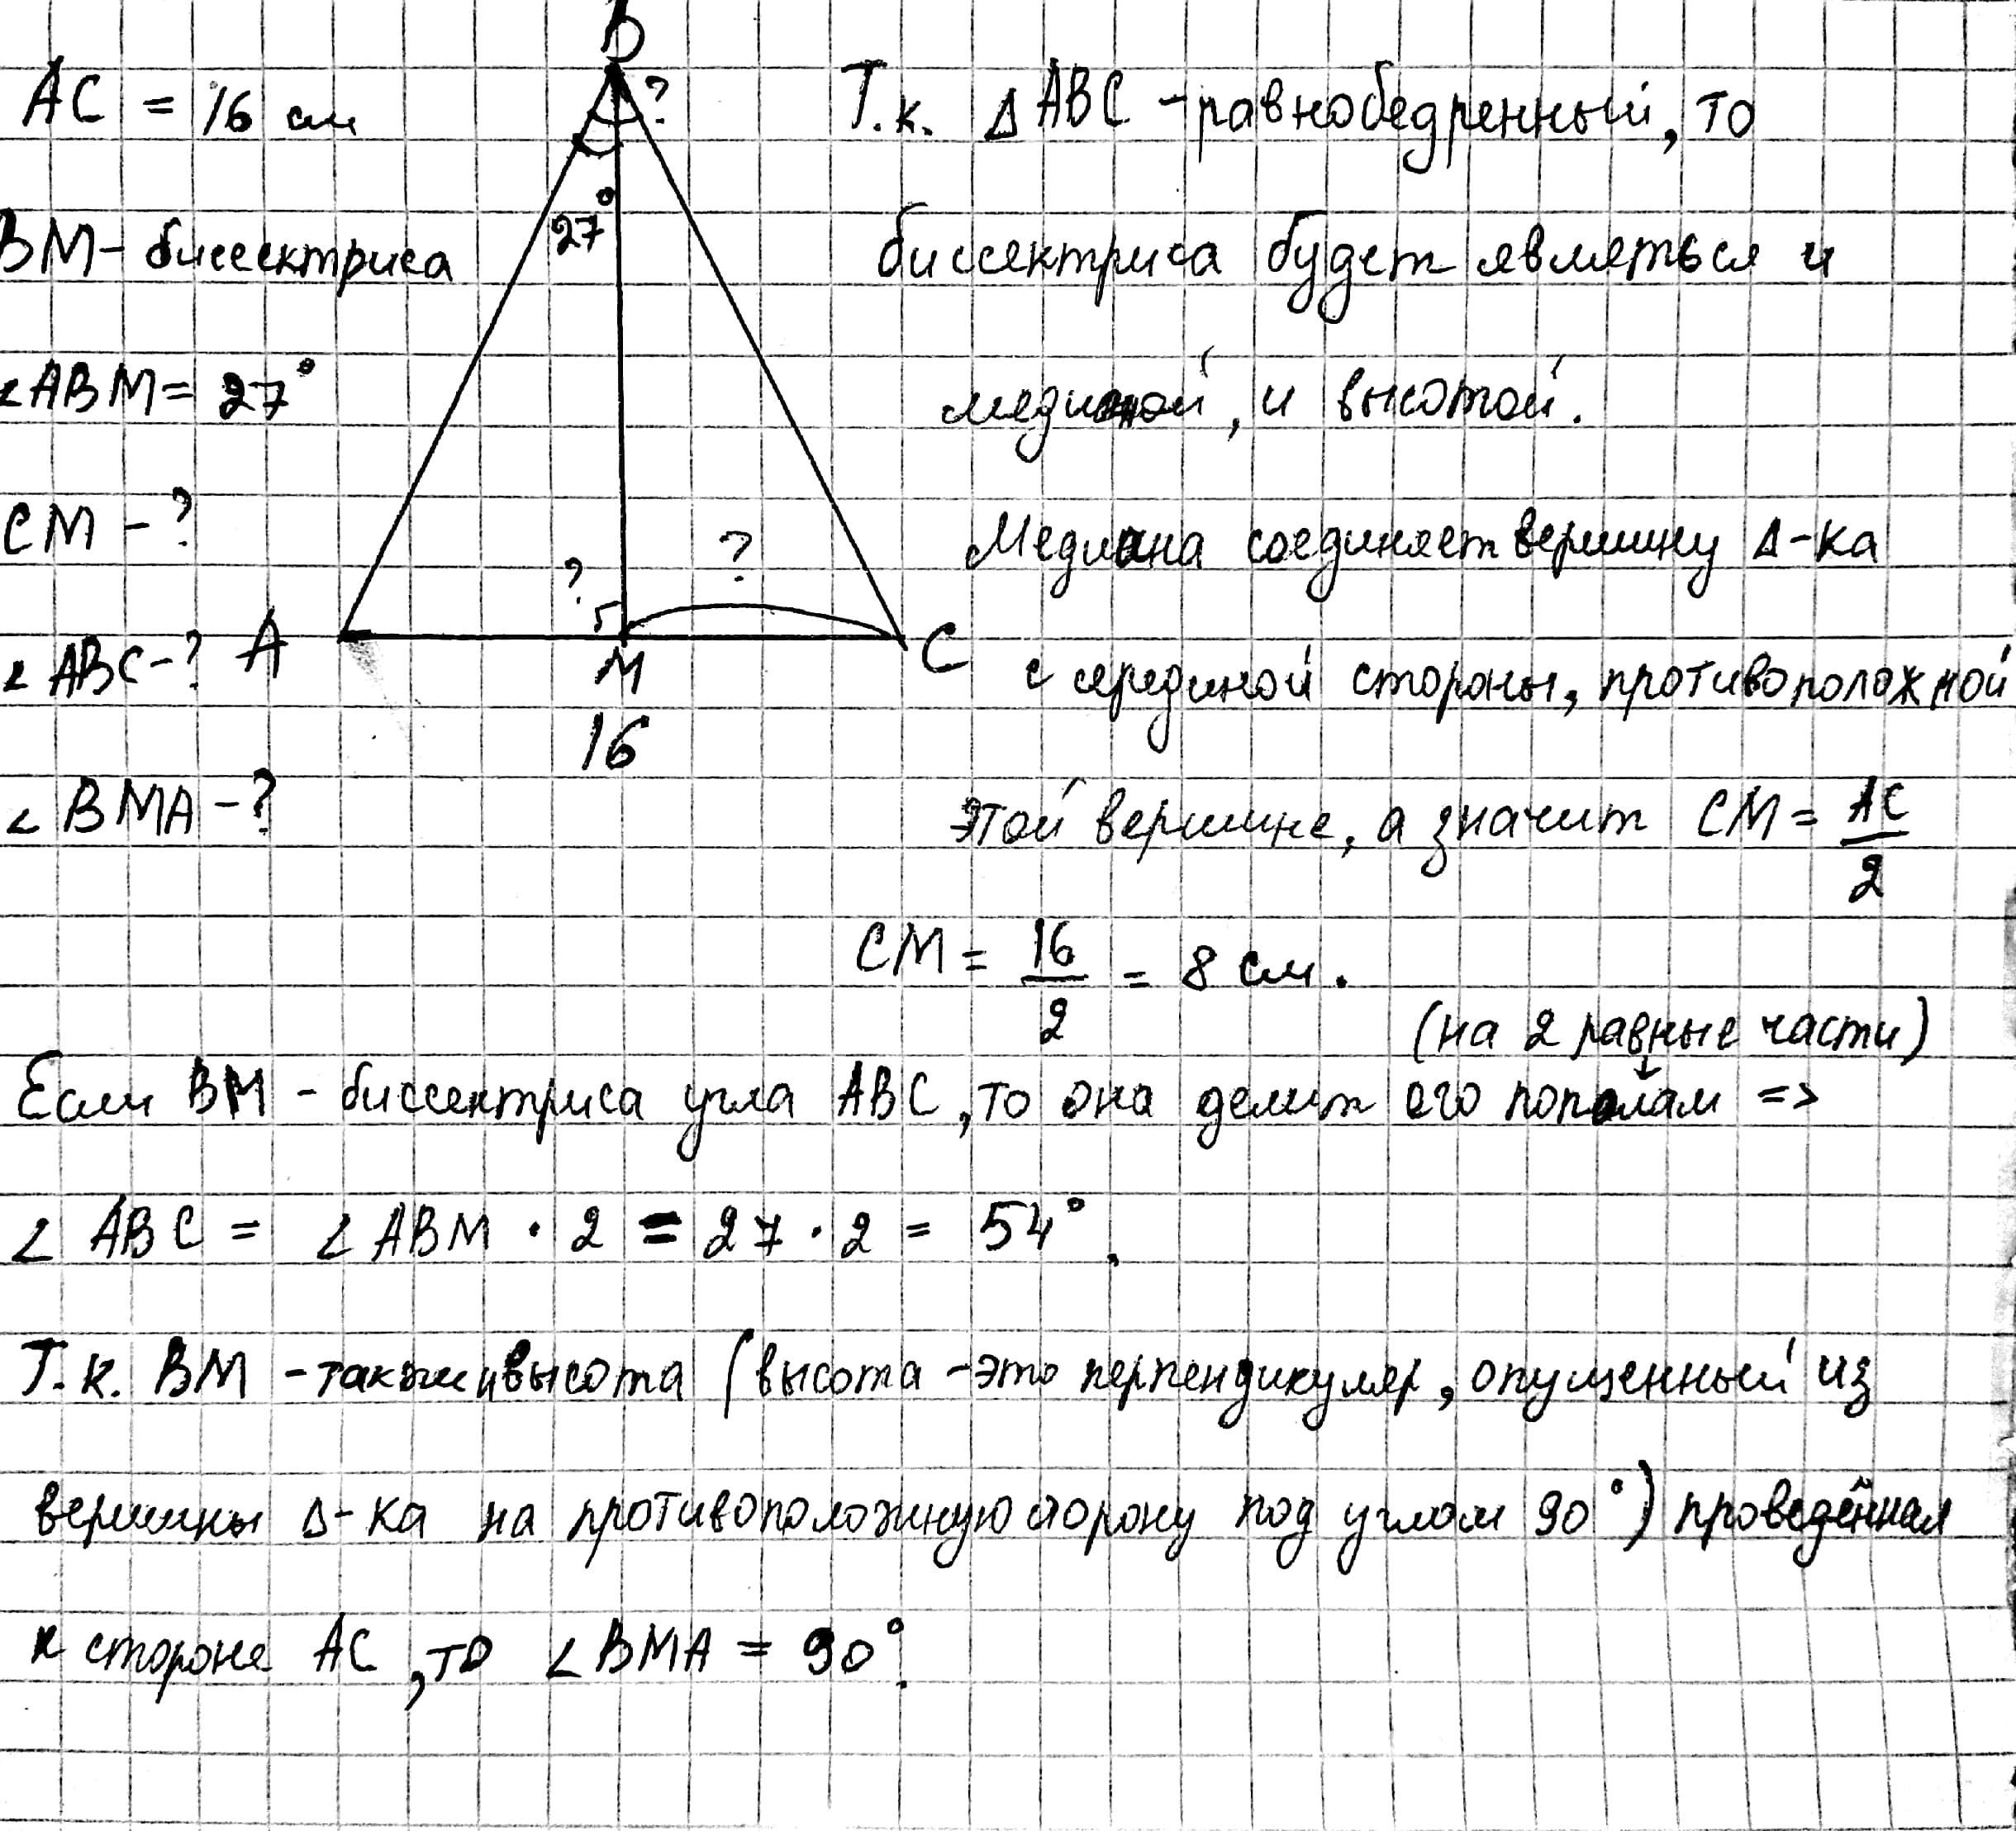 B
AC = 16 см
BM - биссектриса
∠ABM = 27°
CM - ?
∠ABC - ?
∠BMA - ?
?
27°
?
?
A
M
C
16
Т.к. Δ ABC - равнобедренный, то
биссектриса будет являться и
медианой, и высотой.
Медиана соединяет вершину Δ-ка
с серединой стороны, противоположной
этой вершине, а значит CM = AC/2
CM = 16/2 = 8 см.
(на 2 равные части)
Если BM - биссектриса угла ABC, то она делит его пополам =>
∠ ABC = ∠ ABM · 2 = 27 · 2 = 54°.
Т.к. BM - также и высота (высота - это перпендикуляр, опущенный из
вершины Δ-ка на противоположную сторону под углом 90°) проведённая
к стороне AC, то ∠BMA = 90°.